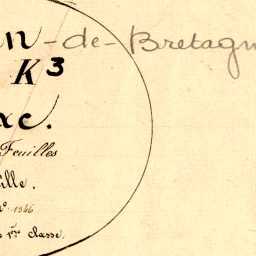 n-de-Bretagn
K3
xe.
Feuilles
ille.
1566
1re classe.